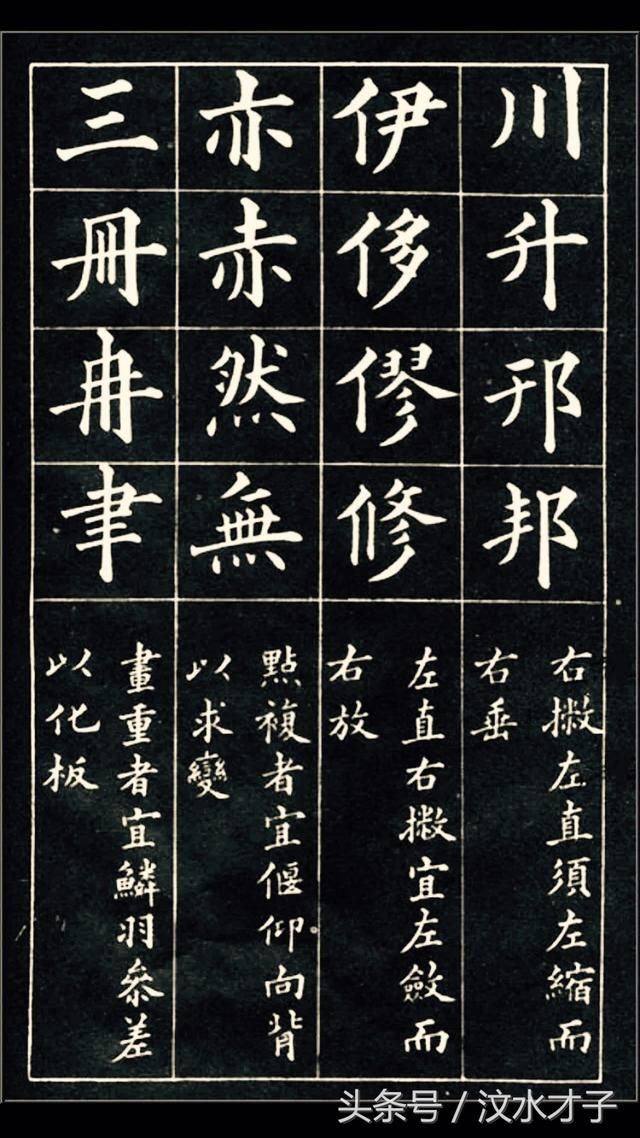 川升邢邦
右撇左直須左縮而
右垂
伊侈僇修
左直右撇宜左斂而
右放
亦赤然無
點複者宜偃仰向背
以求變
三冊冉聿
畫重者宜鱗羽參差
以化板
头条号/汶水才子